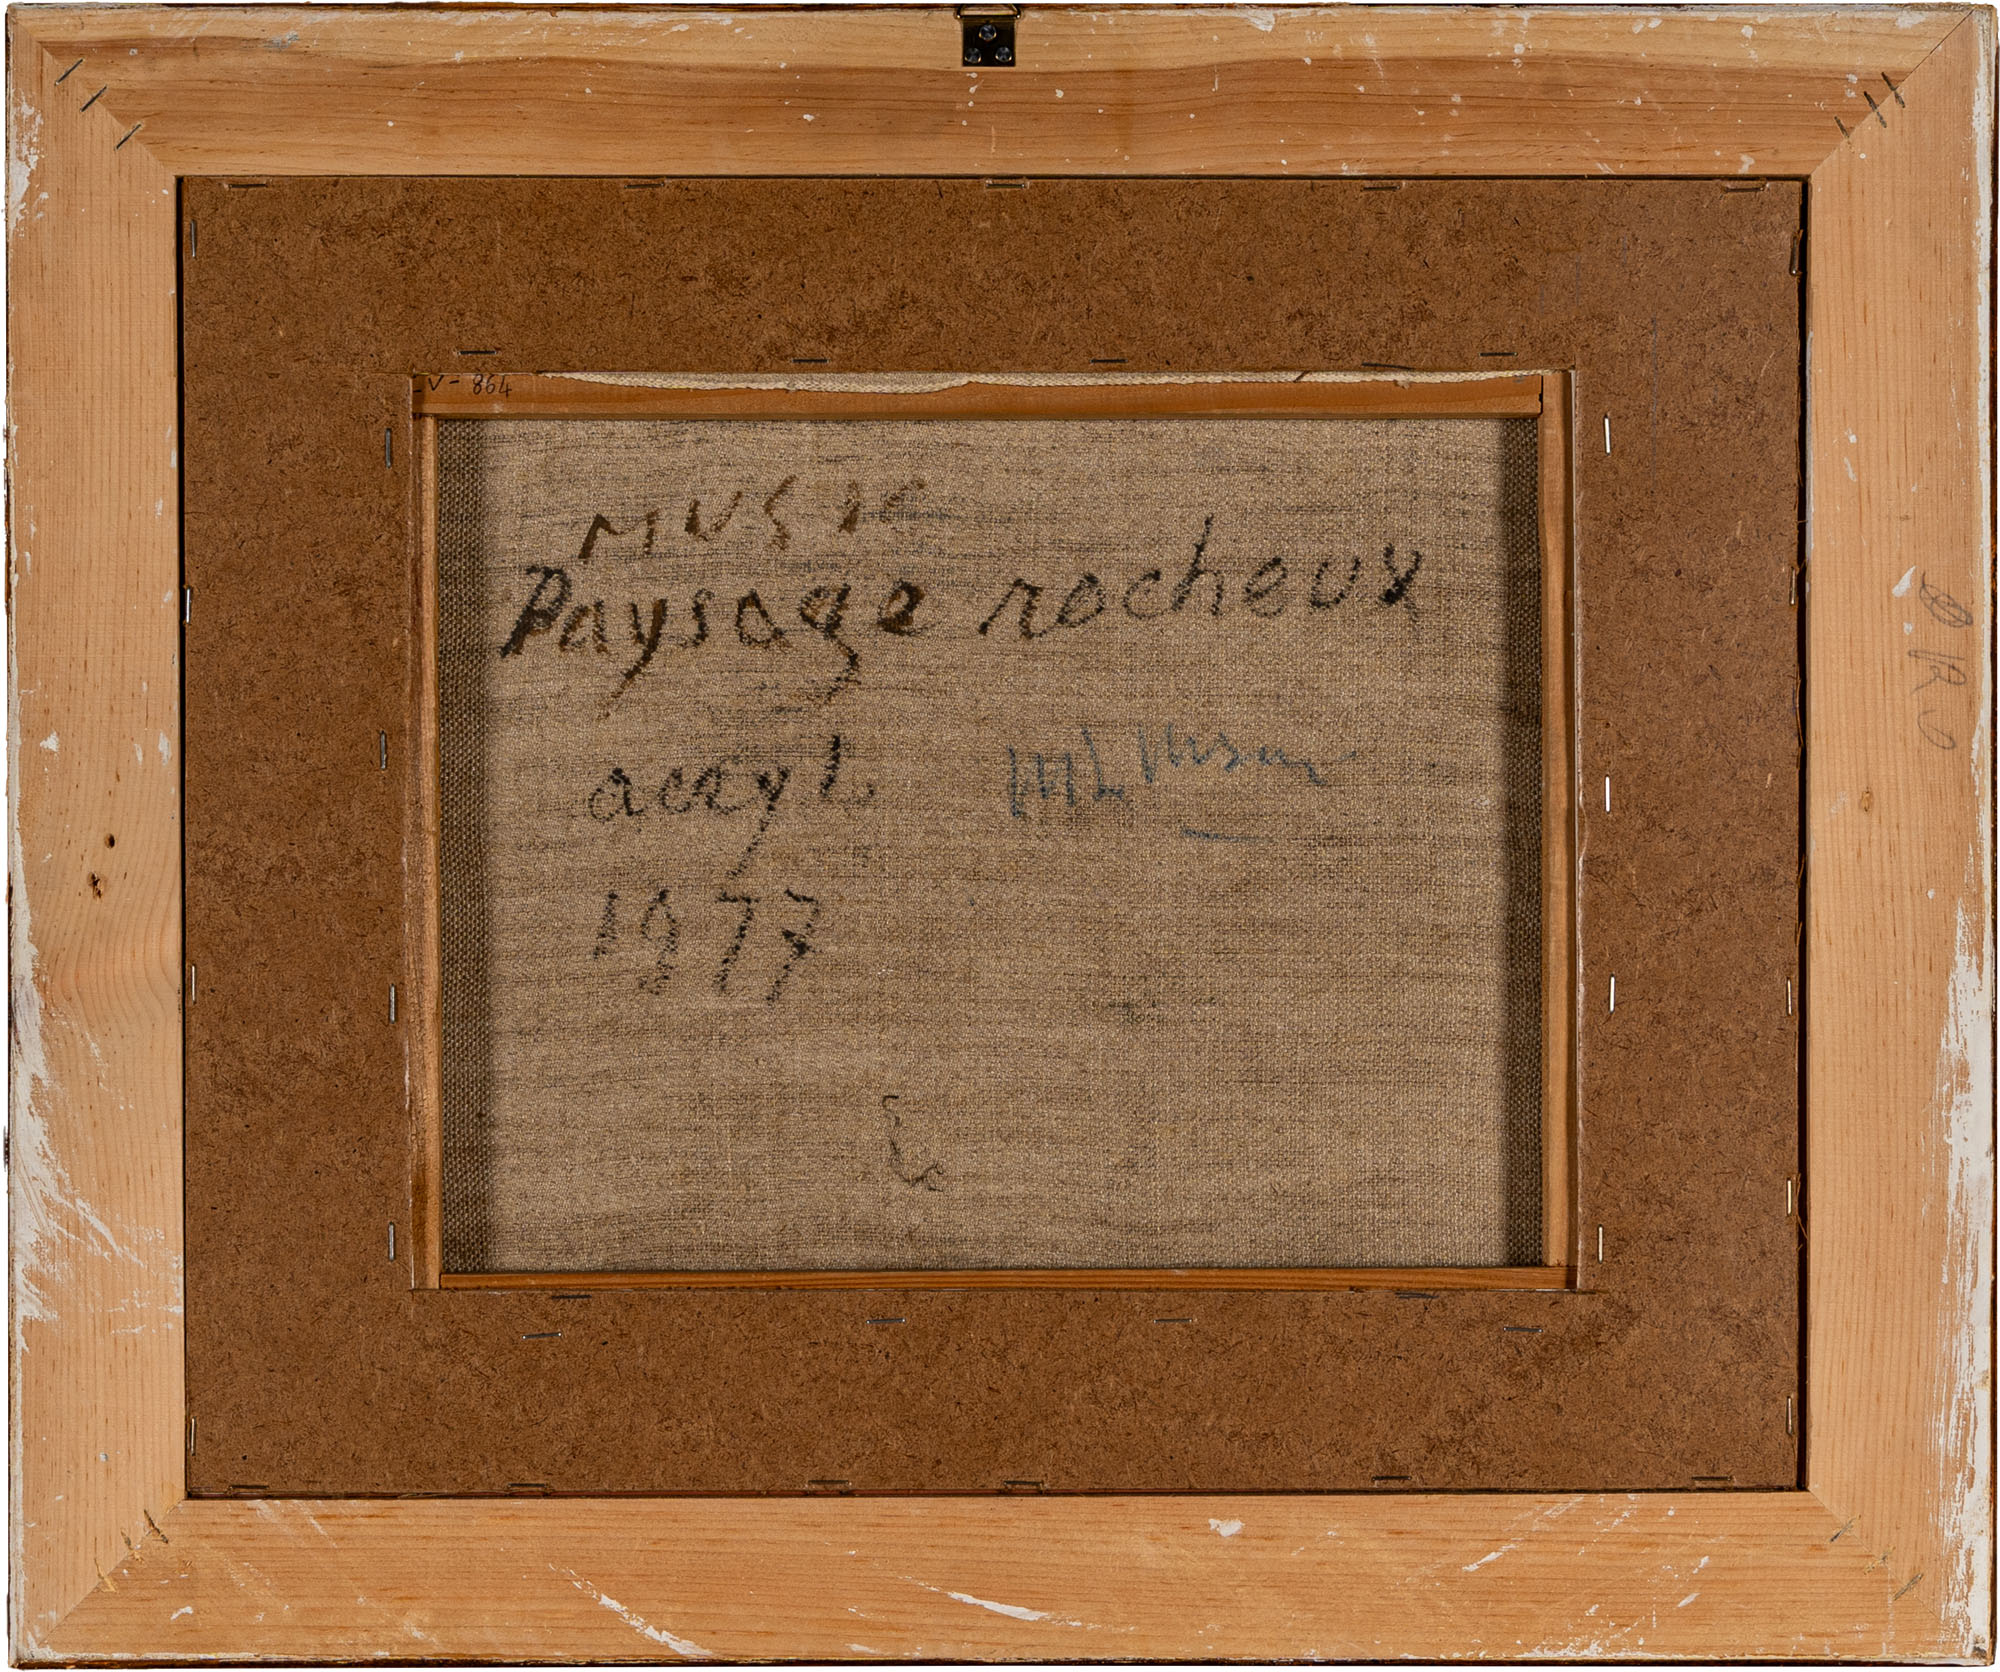 V - 864
MUSIC
Paysage rocheux
acryl.
1977